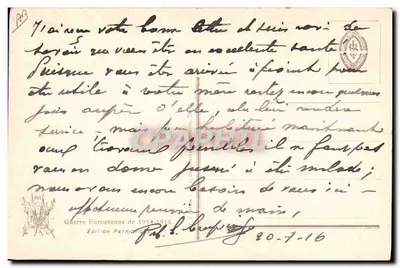 J'ai reçu votre bonne lettre et suis ravi de
savoir que vous êtes en excellente santé
Puisque vous êtes arrivée à point pour
être utile à votre mère restez encore quelques
jours auprès d'elle, et lui rendre
service - mais
aux travaux pénibles il ne faut pas
vous en donner jusqu'à être malade,
nous avons encore besoin de vous ici -
affectueuse poignée de mains,
Guerre Européenne de 1914-1915
EDITION PATRI
20-7-16